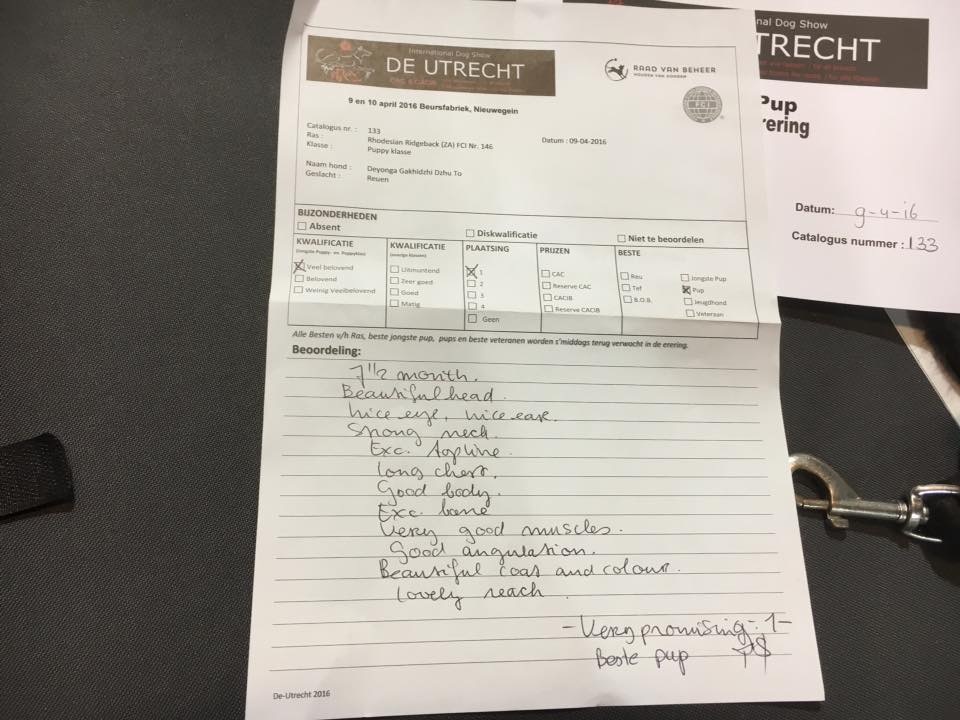 International Dog Show
DE UTRECHT
RAAD VAN BEHEER
HOUDEN VAN HONDEN
FCI
9 en 10 april 2016 Beursfabriek, Nieuwegein
Catalogus nr. : 133
Ras : Rhodesian Ridgeback (ZA) FCI Nr. 146
Datum : 09-04-2016
Klasse : Puppy klasse
Naam hond : Deyonga Gakhidzhi Dzhu To
Geslacht : Reuen
BIJZONDERHEDEN
Absent
Diskwalificatie
Niet te beoordelen
KWALIFICATIE
(Jongste Puppy- en Puppyklas)
Veel belovend
Belovend
Weinig Veelbelovend
KWALIFICATIE
(overige klassen)
Uitmuntend
Zeer goed
Goed
Matig
PLAATSING
1
2
3
4
Geen
PRIJZEN
CAC
Reserve CAC
CACIB
Reserve CACIB
BESTE
Reu
Tef
B.O.B.
Jongste Pup
Pup
Jeugdhond
Veteraan
Alle Besten v/h Ras, beste jongste pup, pups en beste veteranen worden s'middags terug verwacht in de erering.
Beoordeling:
7 1/2 month.
Beautiful head.
nice eye, nice ear.
Strong neck.
Exc. topline.
long chest.
Good body.
Exc. bone
Very good muscles.
Good angulation.
Beautiful coat and colour.
lovely reach.
- Very promising - 1 -
Beste pup
De-Utrecht 2016
nal Dog Show
TRECHT
Pup
rering
Datum: 9-4-16
Catalogus nummer : 133